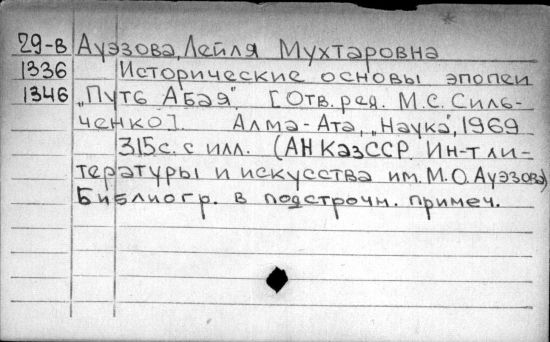 29-в Ауэзова, Лейля Мухтаровна
1336 Исторические основы эпопеи
1346 „Путь Абая". [Отв. ред. М.С. Силь-
ченко]. Алма-Ата, „Наука", 1969
315 с. с илл. (АН КазССР. Ин-т ли-
тературы и искусства им. М.О. Ауэзова)
Библиогр. в подстрочн. примеч.